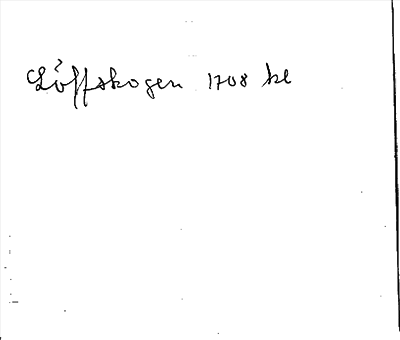 Löffskogen 1708 kl